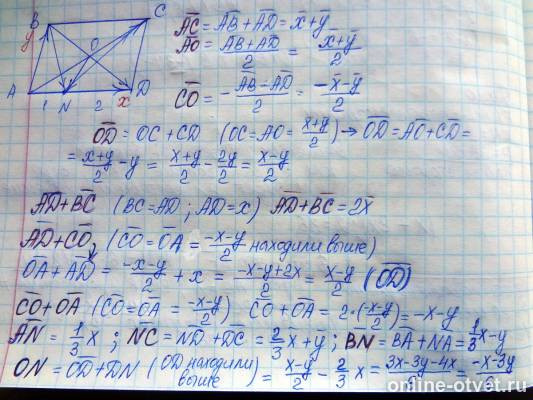 B C
y
O
A N D
1 2 x
AC = AB + AD = x + y
AO = (AB + AD)/2 = (x + y)/2
CO = -(AB - AD)/2 = (-x - y)/2
OD = OC + CD (OC = AO = (x + y)/2) → OD = AO + CD =
= (x + y)/2 - y = (x + y)/2 - 2y/2 = (x - y)/2
AD + BC (BC = AD ; AD = x) AD + BC = 2x
AD + CO, (CO = OA = (-x - y)/2 находили выше)
OA + AD = (-x - y)/2 + x = (-x - y + 2x)/2 = (x - y)/2 (OD)
CO + OA (CO = OA = (-x - y)/2) CO + OA = 2·(-x - y)/2 = -x - y
AN = 1/3 x ; NC = ND + DC = 2/3 x + y ; BN = BA + NA = 1/3 x - y
ON = OD + DN (OD находили выше) = (x - y)/2 - 2/3 x = (3x - 3y - 4x)/6 = (-x - 3y)
online-otvet.ru